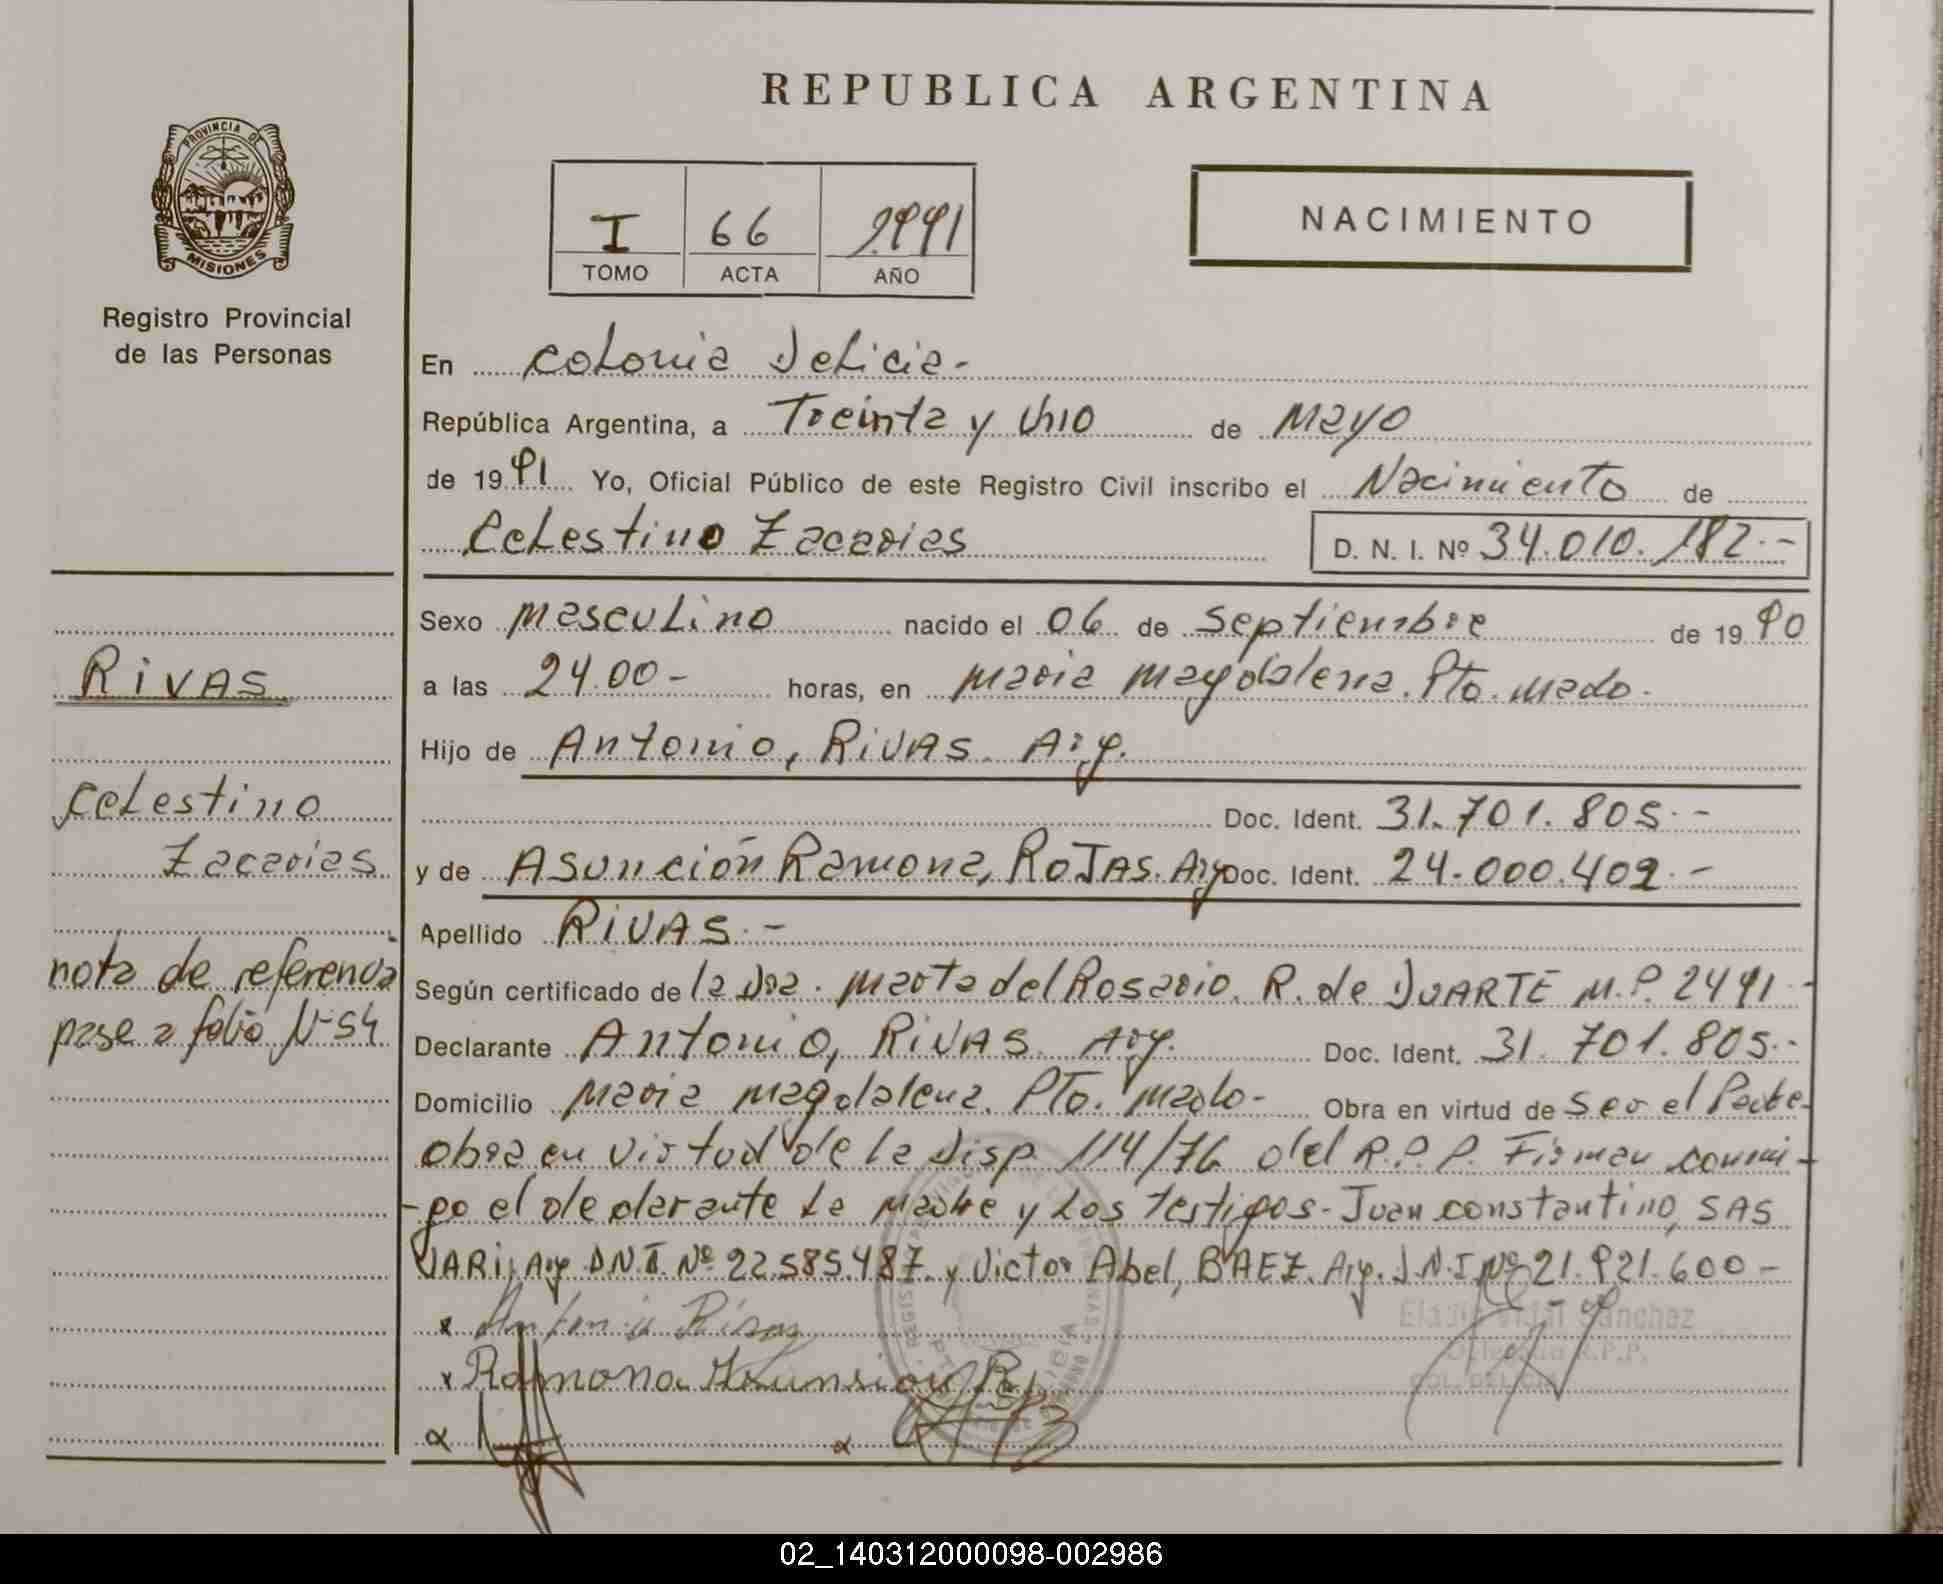 REPUBLICA ARGENTINA
PROVINCIA DE
MISIONES
Registro Provincial
de las Personas
I 66 1991
TOMO ACTA AÑO
NACIMIENTO
En Colonia Delicia-
República Argentina, a Treinta y Uno de Mayo
de 1991 Yo, Oficial Público de este Registro Civil inscribo el Nacimiento de
Celestino Zacarias D. N. I. Nº 34.010.182.-
Sexo Masculino nacido el 06 de Septiembre de 1990
a las 24.00- horas, en Maria Magdalena. Pto. Mado.
Hijo de Antonio, RIVAS. Arg.
Doc. Ident. 31.701.805.-
y de Asunción Ramona, ROJAS. Arg Doc. Ident. 24.000.402.-
Apellido RIVAS.-
Según certificado de la Dra. Marta del Rosario. R. de DUARTE M.P. 2491-
Declarante Antonio, RIVAS. Arg. Doc. Ident. 31.701.805.-
Domicilio Maria Magdalena. Pto. Mado- Obra en virtud de Ser el Padre-
obra en virtud de la Disp. 114/76 del R.P.P. Firman conmi-
-go el declarante la Madre y Los Testigos- Juan Constantino, SAS
VARI, Arg. D.N.I. Nº 22.585.487. y Victor Abel, BAEZ. Arg. D.N.I. Nº 21.921.600-
x Antonio Rivas
x Ramona Asunsion
Sánchez
R.P.P.
COL. DELICIA
RIVAS
Celestino
Zacarias
nota de referencia
pase a folio Nº 54
02_140312000098-002986